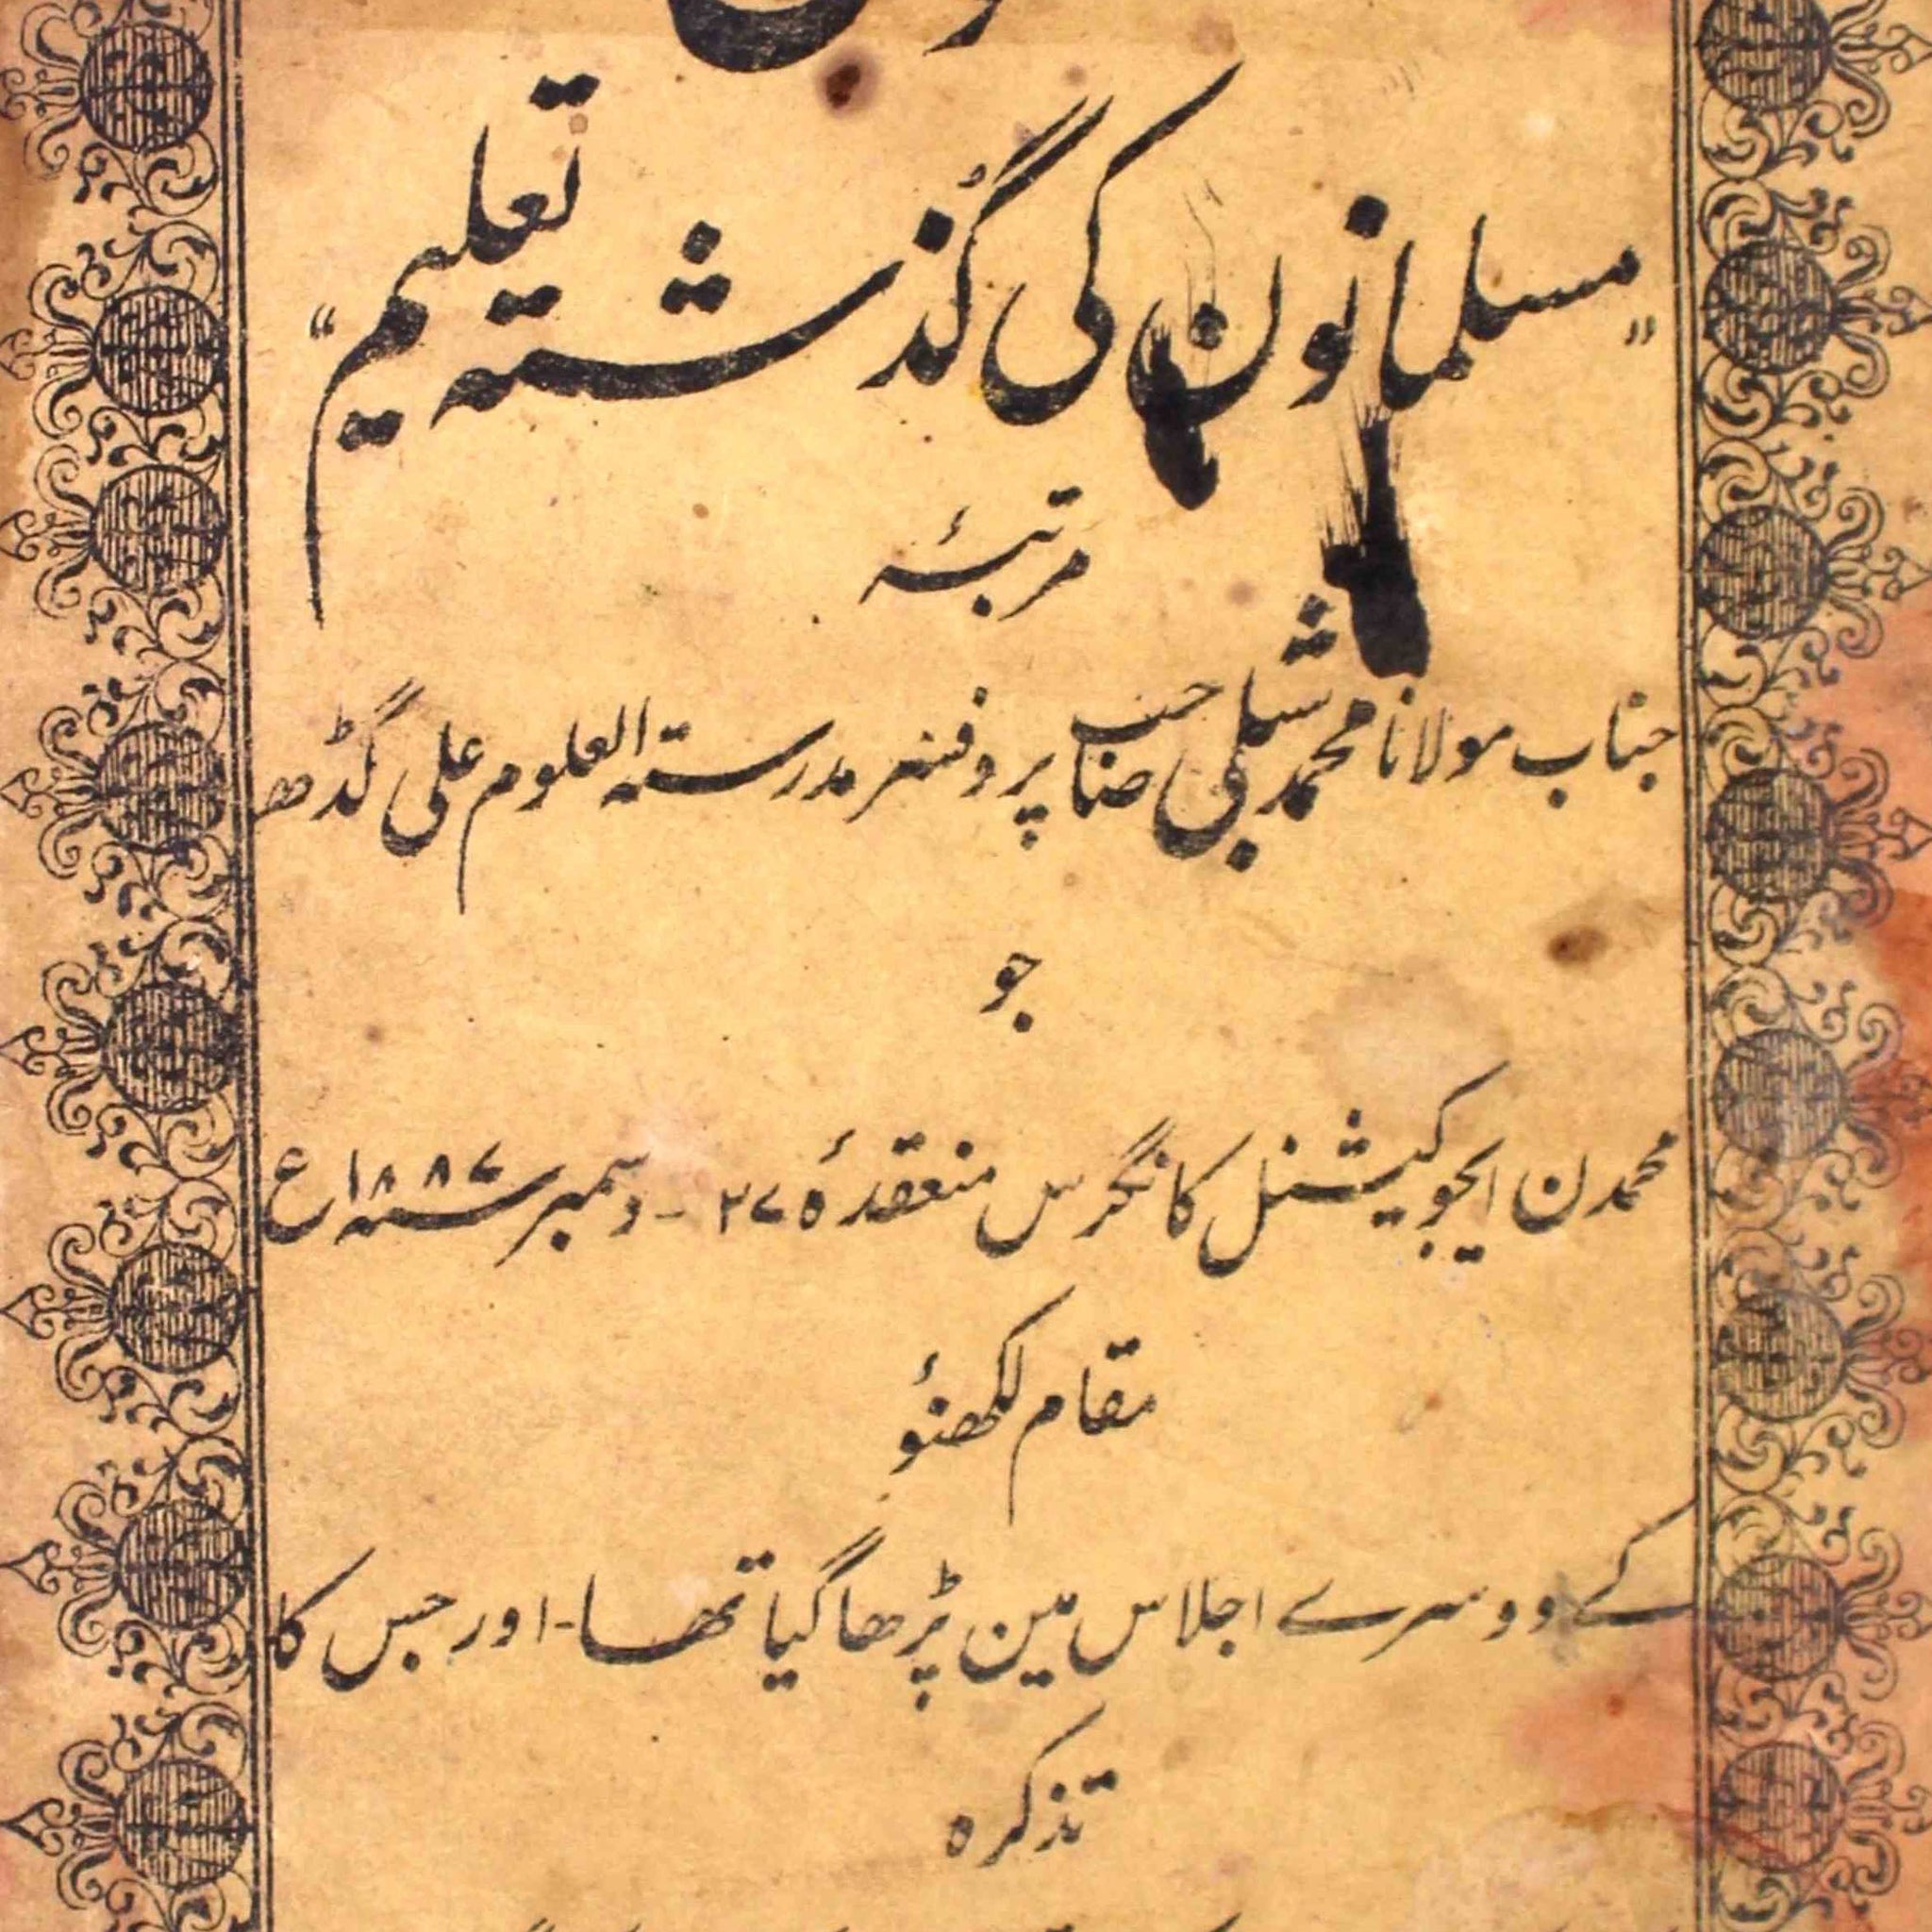 "مسلمانون کی گُذشتہ تعلیم"
مرتبۂ
جناب مولانا محمد شبلی صاحب پروفسر مدرستہ العلوم علی گڈھ
جو
محمدن ایجوکیشنل کانگرس منعقدۂ ۲۷ - دسمبر سنہ ۱۸۸۷ع
مقام لکھنؤ
کے دوسرے اجلاس مین پڑھا گیا تھا - اور جس کا
تذکرہ